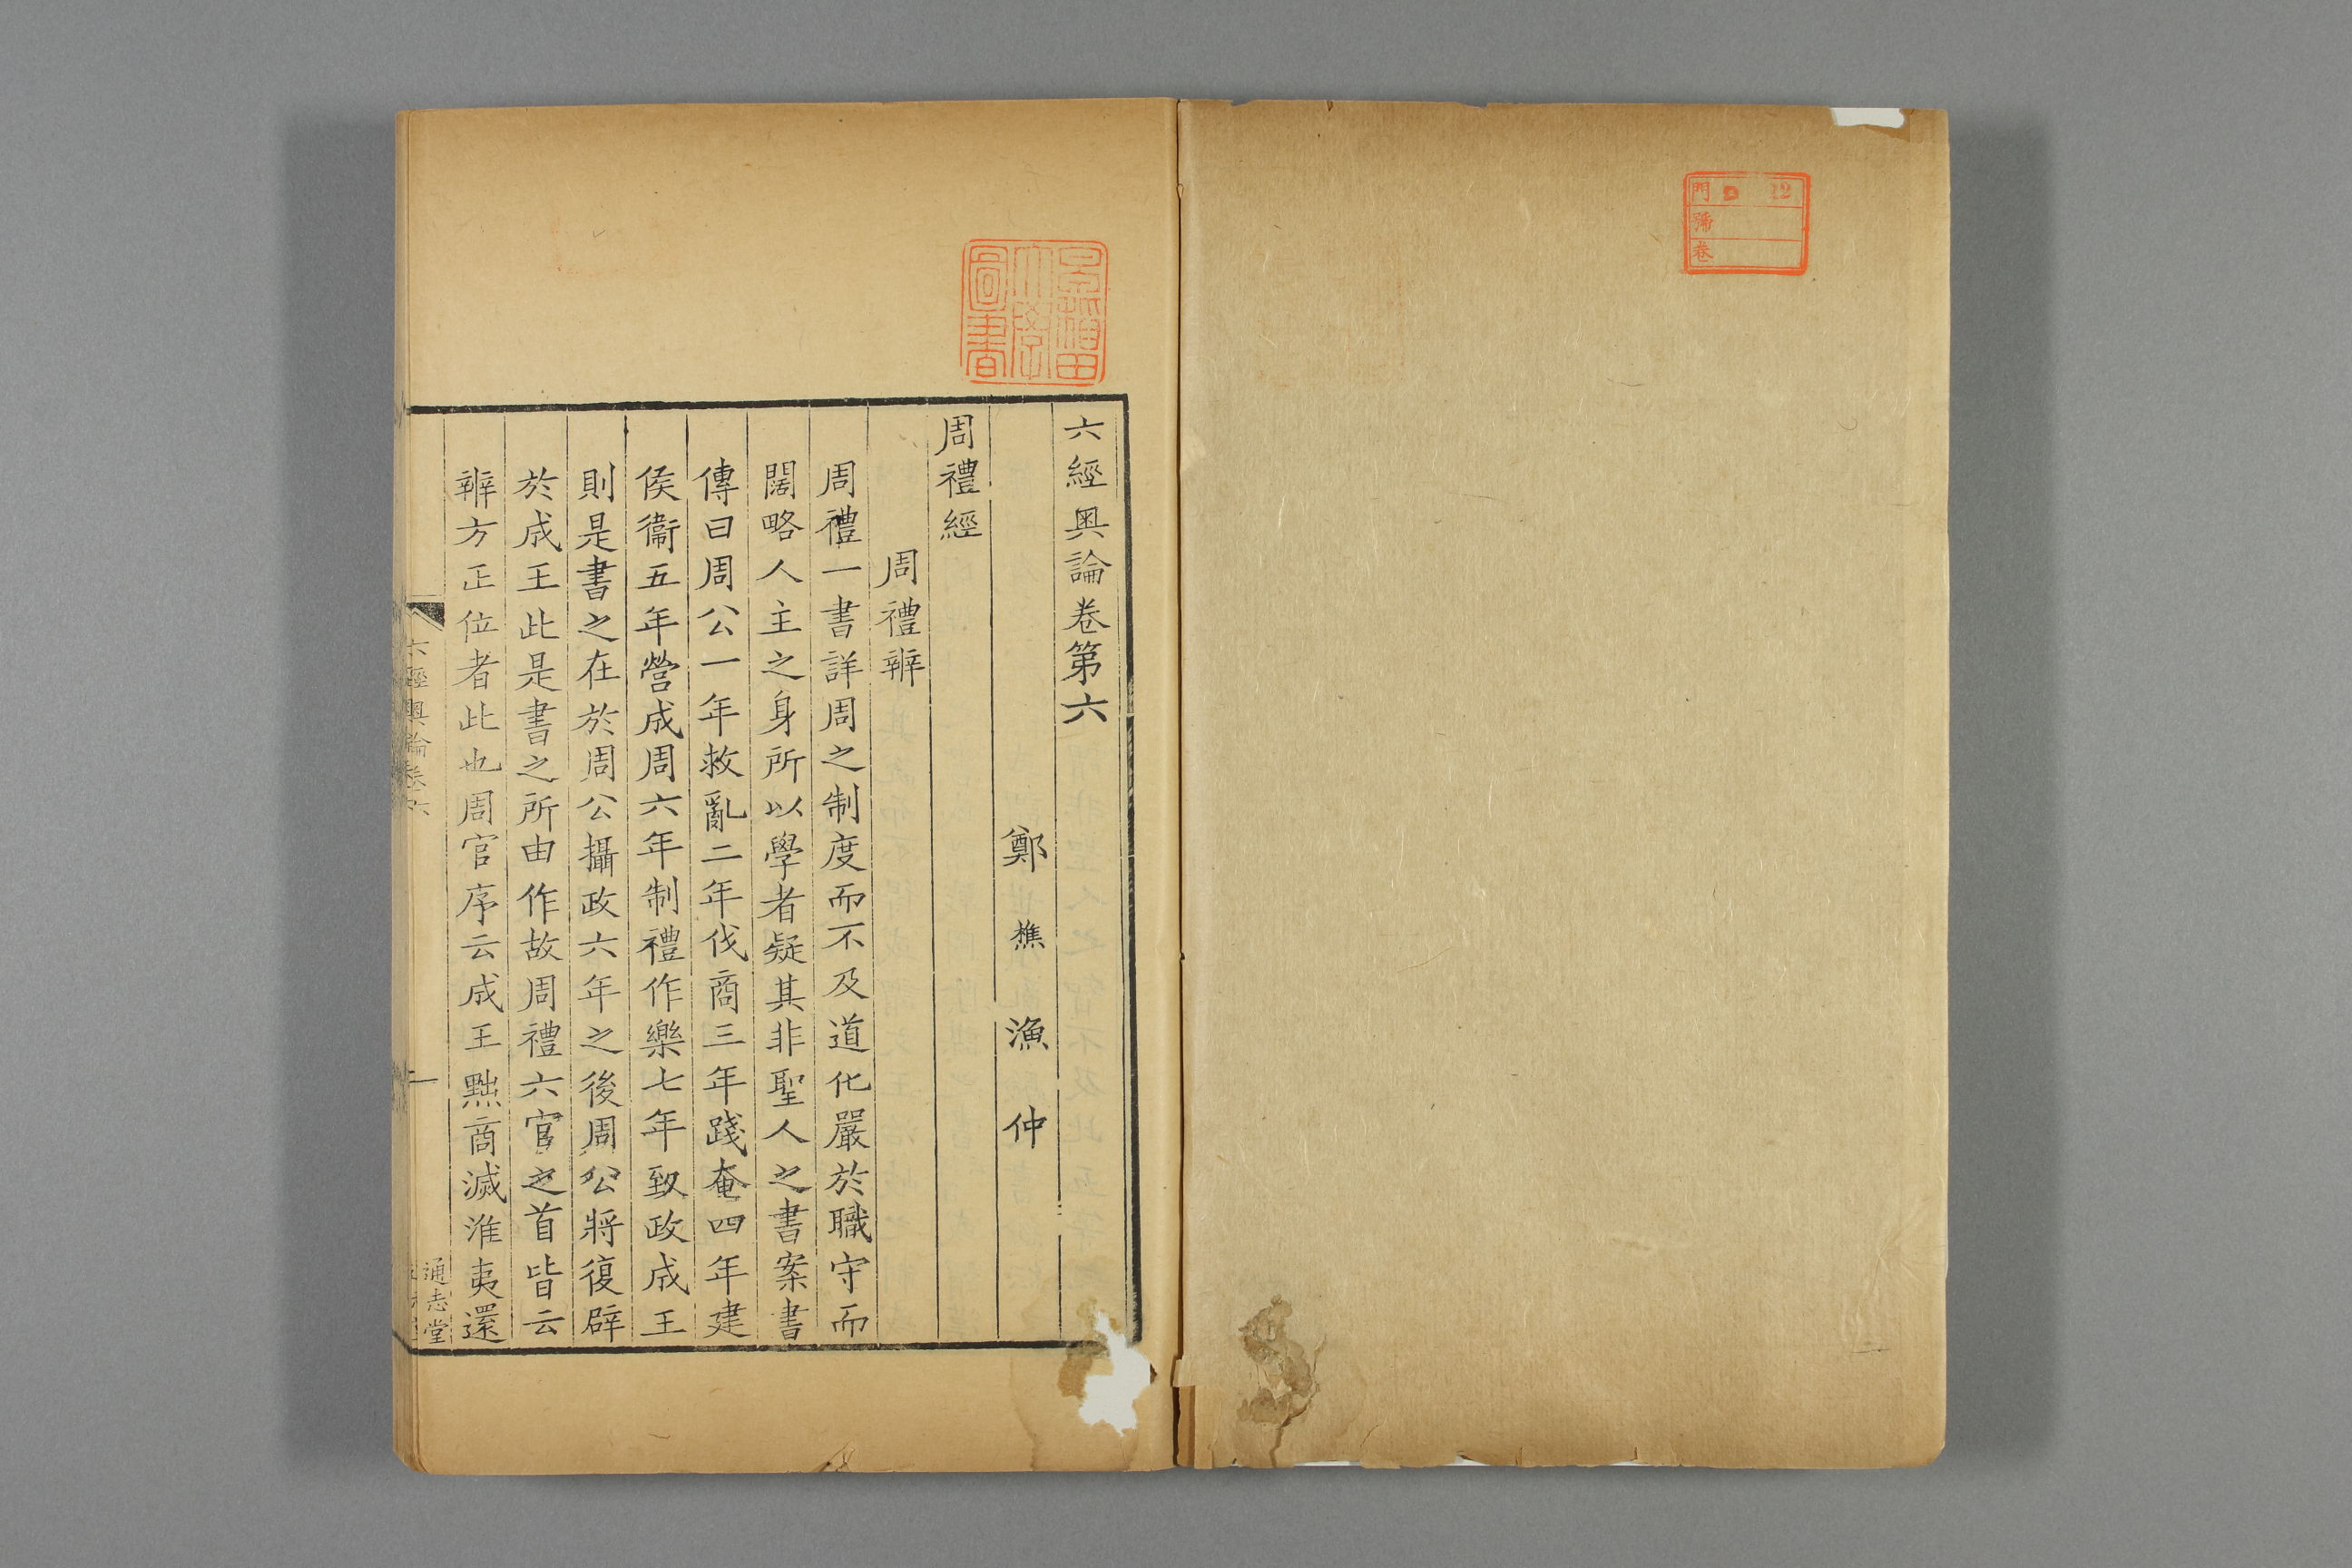 門 22
號
卷
早稻田
大學
圖書
六經奥論卷第六
鄭樵漁仲
周禮經
周禮辨
周禮一書詳周之制度而不及道化嚴於職守而
闊略人主之身所以學者疑其非聖人之書案書
傳曰周公一年救亂二年伐商三年踐奄四年建
侯衞五年營成周六年制禮作樂七年致政成王
則是書之在於周公攝政六年之後周公將復辟
於成王此是書之所由作故周禮六官之首皆云
辨方正位者此也周官序云成王黜商滅淮夷還
六經奥論卷六
一
通志堂